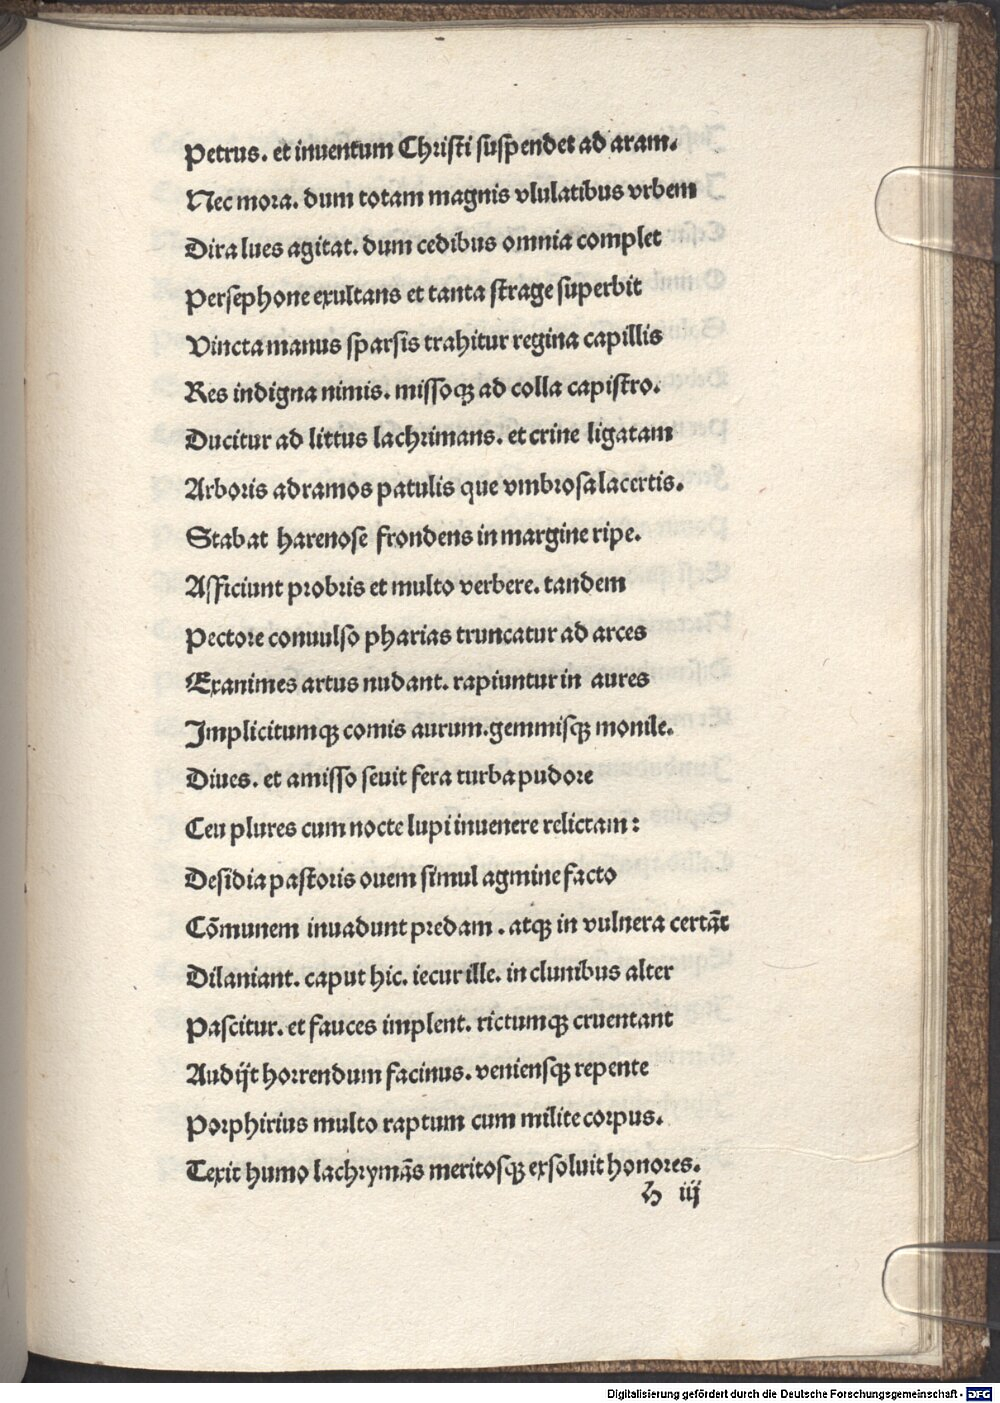 Petrus. et inuentum Christi suspendet ad aram.
Nec mora. dum totam magnis vlulatibus vrbem
Dira lues agitat. dum cedibus omnia complet
Persephone exultans et tanta strage superbit
Vincta manus sparsis trahitur regina capillis
Res indigna nimis. missoqꝫ ad colla capistro.
Ducitur ad littus lachrimans. et crine ligatam
Arboris ad ramos patulis que vmbrosa lacertis.
Stabat harenose frondens in margine ripe.
Afficiunt probris et multo verbere. tandem
Pectore conuulso pharias truncatur ad arces
Exanimes artus nudant. rapiuntur in aures
Implicitumqꝫ comis aurum. gemmisqꝫ monile.
Diues. et amisso seuit fera turba pudore
Ceu plures cum nocte lupi inuenere relictam:
Desidia pastoris ouem simul agmine facto
Cōmunem inuadunt predam. atqꝫ in vulnera certāt
Dilaniant. caput hic. iecur ille. in clunibus alter
Pascitur. et fauces implent. rictumqꝫ cruentant
Audijt horrendum facinus. veniensqꝫ repente
Porphirius multo raptum cum milite corpus.
Texit humo lachrymās meritosqꝫ exsoluit honores.
h iij
Digitalisierung gefördert durch die Deutsche Forschungsgemeinschaft - DFG